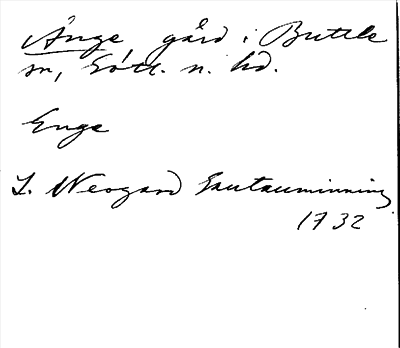 Änge, gård i Buttle
sn, Gotl. n. hd.
Enge
L. Neogard Gautauminning
1732